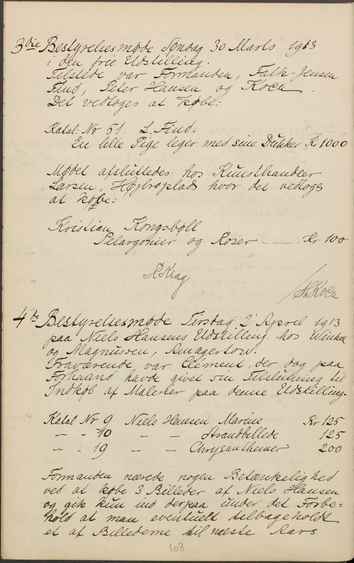 3die Bestyrelsesmøde Søndag 30 Marts 1913
i den frie Udstilling.
Tilstede var Formanden, Falk-Jensen
Find, Peter Hansen og Koch.
Det vedtoges at købe:
Katal. Nr 51 L. Find.
En lille Pige leger med sine Dukker Kr 1000
Mødet afsluttedes hos Kunsthandler
Larsen, Højbroplads hvor det vedtogs
at købe:
Kristian Kongsbøll
Pelargonier og Roser — Kr 100
4de Bestyrelsesmøde Tirsdag 2' April 1913
paa Niels Hansens Udstilling hos Winkel
og Magnussen, Amagertorv.
Fraværende var Clement, der dog paa
Forhaand havde givet sin Tilslutning til
Indkøb af Malerier paa denne Udstilling.
Katal Nr 9 Niels Hansen Marine Kr 125
- - 10 - - Strandbillede 125
- - 19 - - Chrysanthemer 200
Formanden nærede nogen Betænkelighed
ved at købe 3 Billeder af Niels Hansen
og gik kun ind derpaa under det Forbe-
hold at man eventuelt tilbageholdt
et af Billederne til næste Aars
108